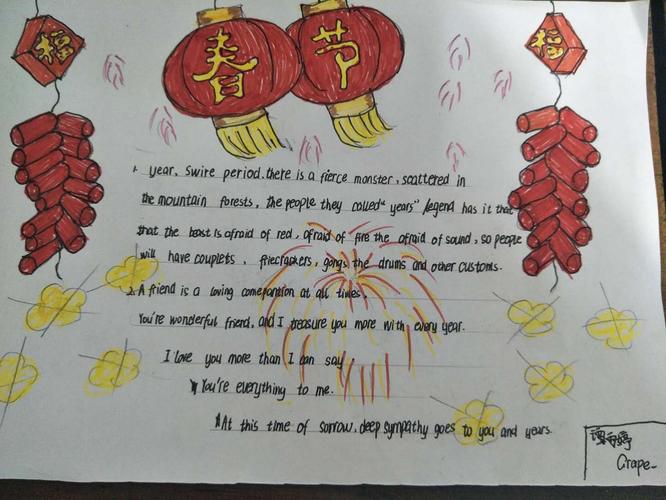 福
春节
福
1. year, Swire period. there is a fierce monster, scattered in
the mountain forests, the people they called "years" legend has it that
that the beast is afraid of red, afraid of fire the afraid of sound, so people
will have couplets, firecrackers, gongs the drums and other customs.
2. A friend is a loving comepantion at all times.
You're wonderful friend, and I treasure you more with every year.
I love you more than I can say,
You're everything to me.
At this time of sorrow, deep sympathy goes to you and years.
Grape.